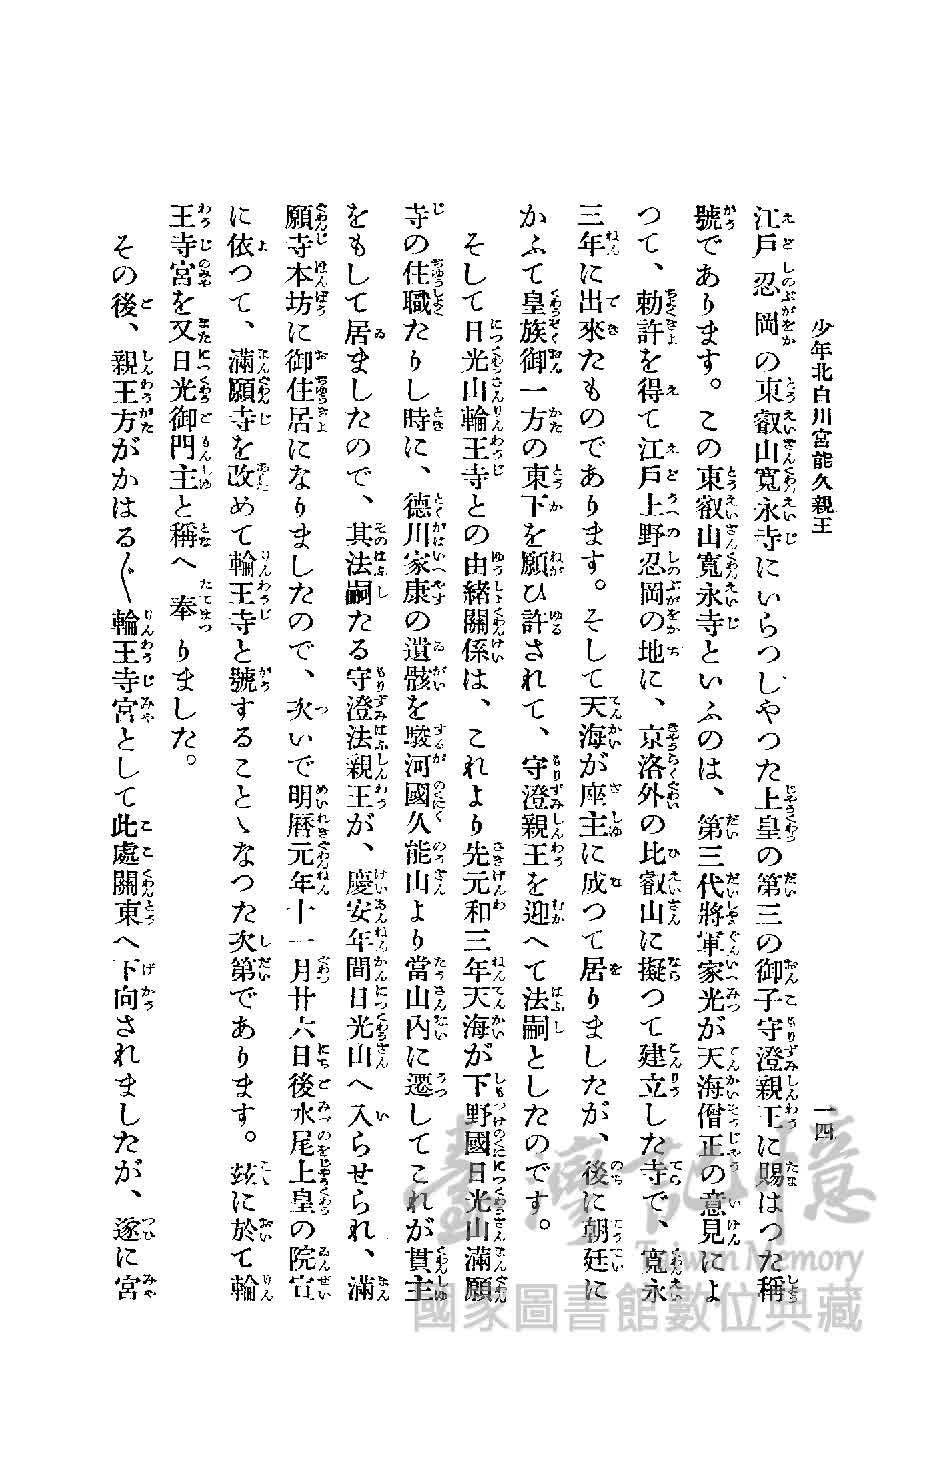 少年北白川宮能久親王
一四
江戸忍岡の東叡山寛永寺にいらつしやつた上皇の第三の御子守澄親王に賜はつた稱
號であります。この東叡山寛永寺といふのは、第三代將軍家光が天海僧正の意見によ
つて、勅許を得て江戸上野忍岡の地に、京洛外の比叡山に擬つて建立した寺で、寛永
三年に出來たものであります。そして天海が座主に成つて居りましたが、後に朝廷に
かふて皇族御一方の東下を願ひ許されて、守澄親王を迎へて法嗣としたのです。
そして日光山輪王寺との由緒關係は、これより先元和三年天海が下野國日光山滿願
寺の住職たりし時に、德川家康の遺骸を駿河國久能山より當山内に遷してこれが貫主
をもして居ましたので、其法嗣たる守澄法親王が、慶安年間日光山へ入らせられ、滿
願寺本坊に御住居になりましたので、次いで明曆元年十一月廿六日後水尾上皇の院宣
に依つて、滿願寺を改めて輪王寺と號することゝなつた次第であります。玆に於て輪
王寺宮を又日光御門主と稱へ奉りました。
その後、親王方がかはる〲輪王寺宮として此處關東へ下向されましたが、遂に宮
臺灣記憶
Taiwan Memory
國家圖書館數位典藏